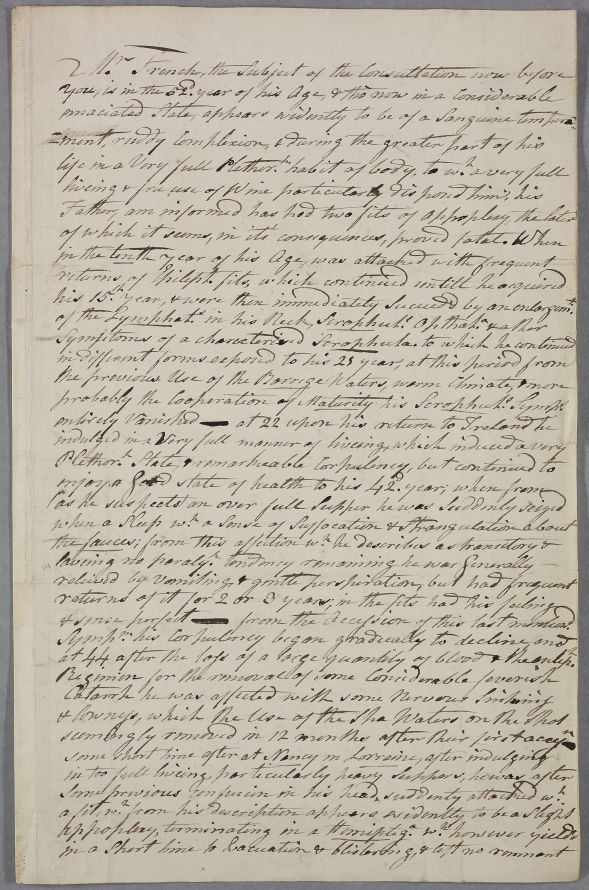 Mr. French, the Subject of the Consultation now before
you, is in the 52d. year of his Age, & tho now in a Considerable
emaciated State, appears evidently to be of a Sanguine tempera=
=ment, ruddy Complexion, & during the greater part of his
life in a Very full Plethor.c habit of body, to wh. a very full
living & free use of Wine particularly disposed him; his
Father, am informed has had two fits of Appoplexy, the latter
of which it seems, in its consequences, proved fatal. When
in the tenth year of his Age, was attacked with frequent
returns of Epileph. fits, which continued untill he acquired
his 15th. year, & were then immediately Succeed'd by an enlargemt.
of the Lymphat.s in his Neck, Scrophul.s Opthal.a & other
Symptoms of a characterised Scrophula. to which he continued
in different forms exposed to his 23 year, at this period from
the previous Use of the Barrege Waters, warm Climate, & more
probably the Cooperation of Maturity his Scrophul.s Sympt.s
entirely Vanished — at 22 upon his return to Ireland he
indulged in a Very full manner of living, which induced a very
Plethor.c State, & remarkeable Corpulency, but continued to
enjoy a Good state of health to his 42d. year; when from
(as he suspects) an over full Supper he was Suddenly seized
when a Sleep wth. a Sense of Suffocation & Strangulation about
the fauces; from this affection wh. he describes as transitory &
leaving no paralyt. tendency remaining he was Generally
relieved by Vomiting & gentle perspiration, but had frequent
returns of it for 2 or 3 years; in the fits had his feeling
& sense perfect — from the Accession of this last mention'd
Symptm. his Corpulency began gradually to decline, and
at 44 after the loss of a large quantity of blood & the antiph.
Regimen for the removal of some Considerable feverish
Catarrh he was affected with some Nervous Sinkings
& lowness, which the Use of the Spa Waters on the Spot
seemingly removed in 12 months after their first accessn.
some short time after at Nancy in Lorraine, after indulging
in too full living, particularly heavy Suppers, he was, after
some previous Confusion in his head, suddenly attacked wth.
a fit, wh. from his description appears evidently to be a Slight
Appoplexy, terminating in a Hemiplega. wh. however yields
in a Short time to Evacuation & blistering, & left no remnant